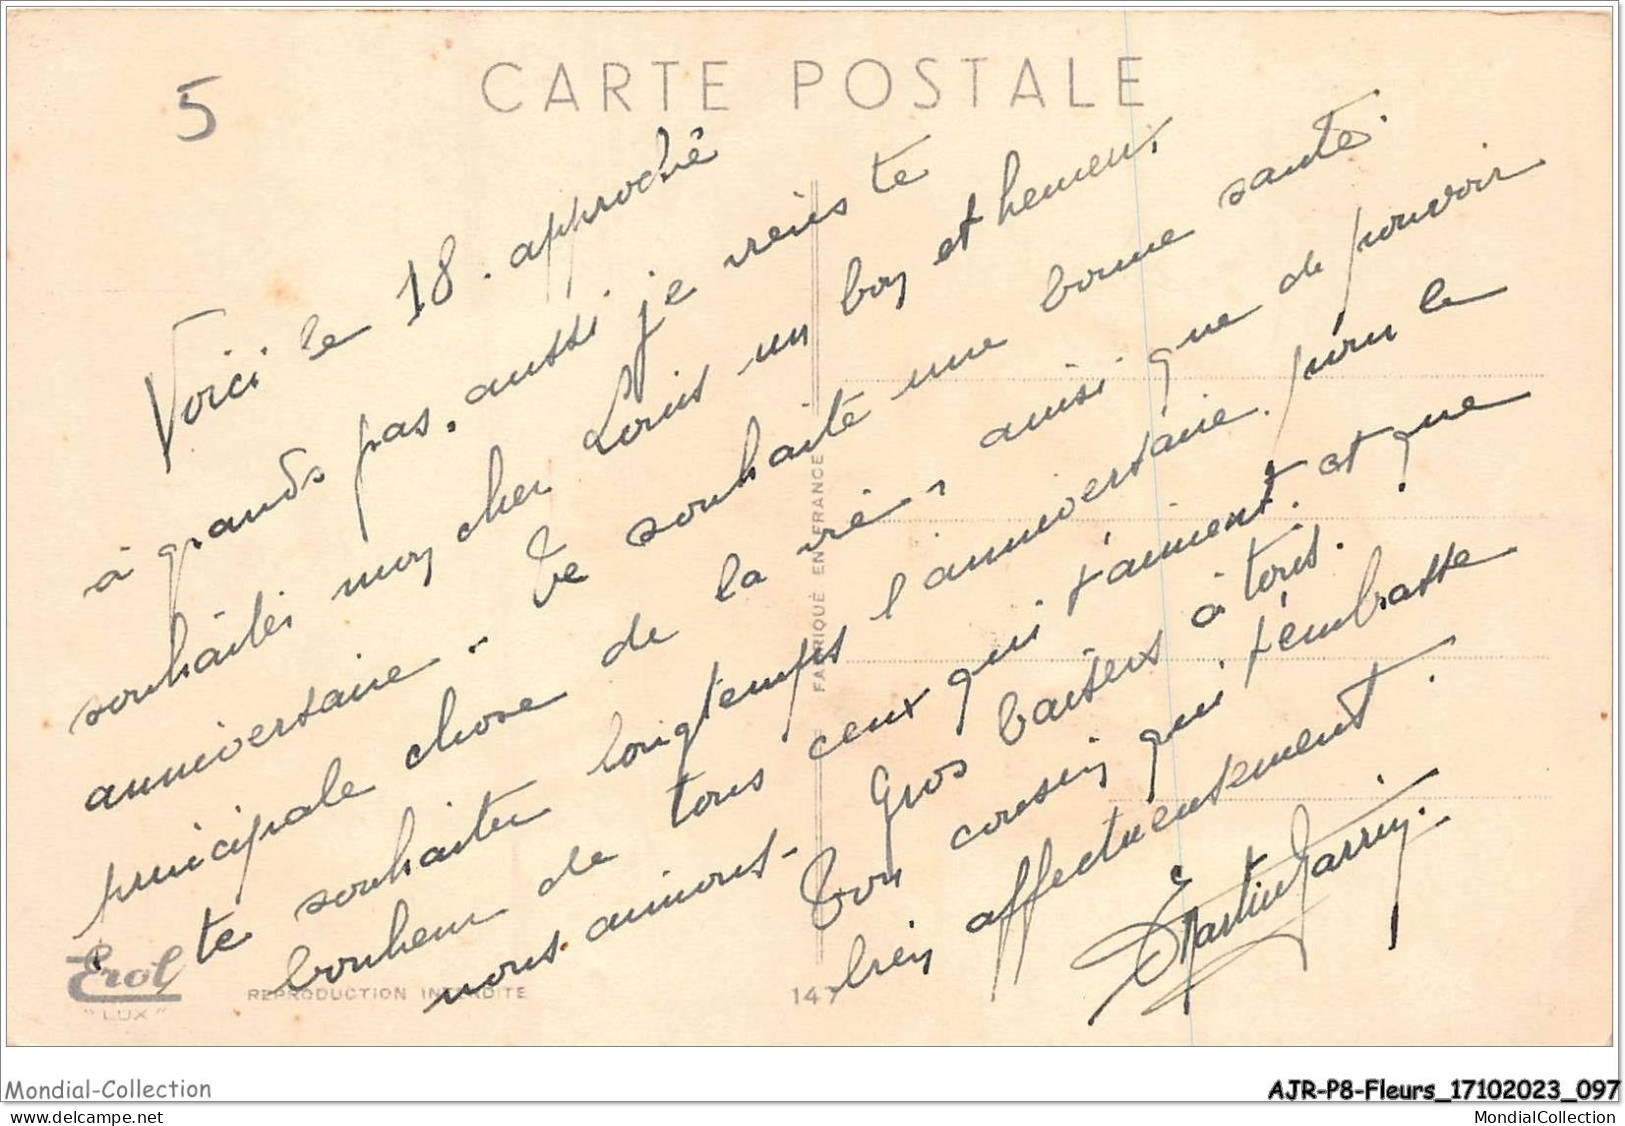 CARTE POSTALE
5
Voici le 18. approche
à grands pas. aussi je viens te
souhaiter mon cher Louis un bon et heureux
anniversaire. Te souhaite une bonne santé.
principale chose de la vie, ainsi que de pouvoir
te souhaiter longtemps l'anniversaire. pour le
bonheur de tous ceux qui t'aiment. et que
nous. aimons. Gros baisers à tous.
Bon cousin qui. t'embrasse
bien affectueusement.
FABRIQUÉ EN FRANCE
Erol
"LUX"
REPRODUCTION INTERDITE
147
Mondial-Collection
AJR-P8-Fleurs_17102023_097
www.delcampe.net
MondialCollection